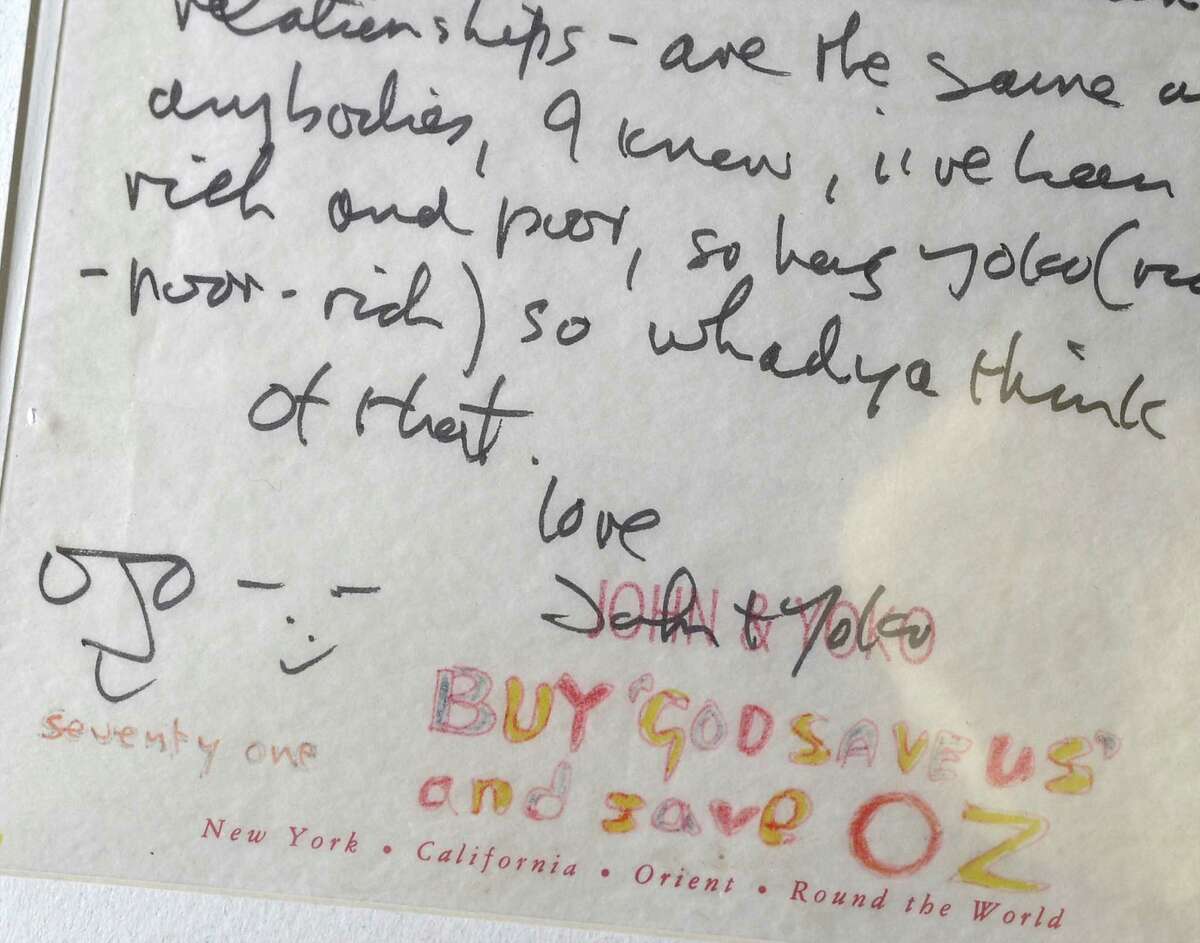 relationships - are the same
anybodies, I know, i've been
rich and poor, so has Yoko (
- poor - rich) so whadya think
of that.
love
John + Yoko
JOHN & YOKO
seventy one
BUY 'GOD SAVE US'
and save OZ
New York • California • Orient • Round the World